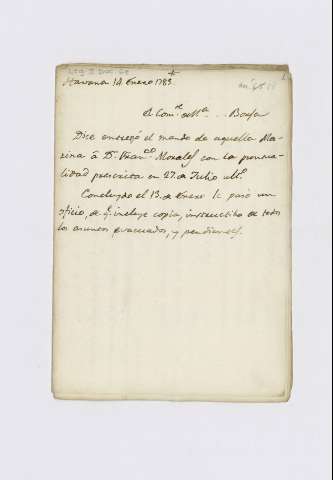 Havana 14 Enero 1783
El Com.te de M.a ... Borja
Dice entregó el mando de aquella Ma-
rina á D.n Fran.co Morales con la puntua-
lidad prescrita en 27. de Julio ult.o
Concluyda el 13. de Enero le pasó un
oficio, de q.e incluye copia, instructibo de todos
los asuntos evacuados, y pendientes.